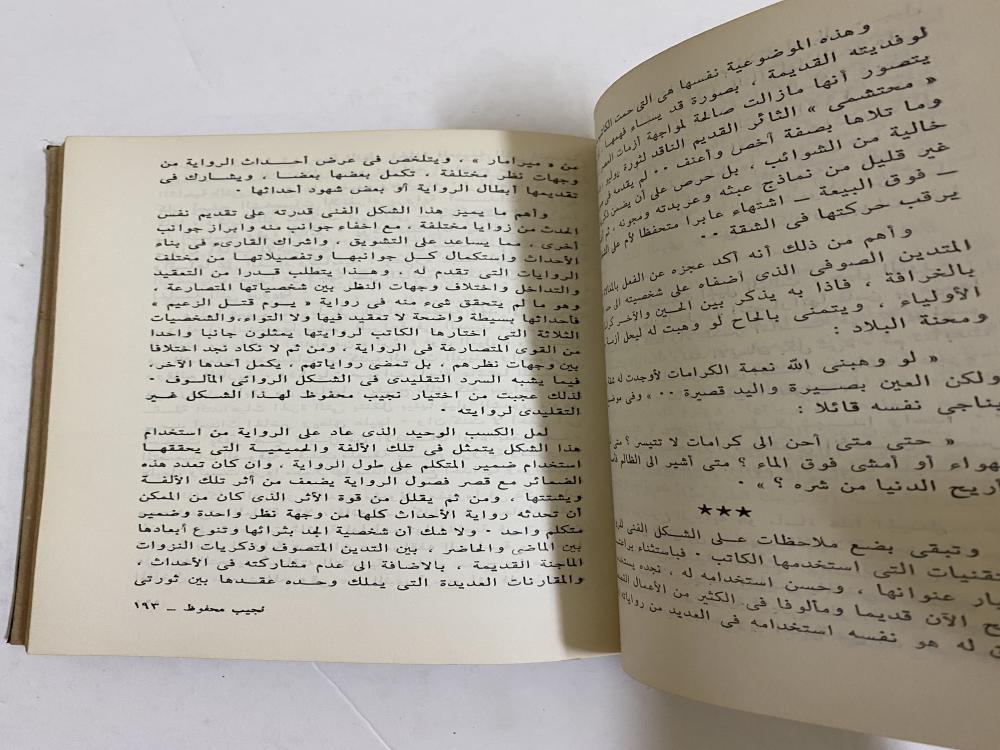 وهذه الموضوعية نفسها هى التى حمت
لوفديته القديمة ، بصورة قد يساء فهمها
يتصور أنها مازالت صالحة لمواجهة أزمات
« محتشمى » الثائر القديم الناقد لثورة يوليو
وما تلاها بصفة أخص وأعنف ٠٠ لم يقدمه فى
خالية من الشوائب ، بل حرص على أن يضمن
غير قليل من نماذج عبثه وعربدته ومجونه ،
ــ فوق البيعة ــ اشتهاء عابرا متحفظا لأم على
يرقب حركتها فى الشقة ٠٠
وأهم من ذلك أنه أكد عجزه عن الفعل
المتدين الصوفى الذى أضفاه على شخصيته الى
بالخرافة ، فاذا به يذكر بين الحين والآخر
الأولياء ، ويتمنى بالحاح لو وهبت له ليحل
ومحنة البلاد :
« لو وهبنى الله نعمة الكرامات لأوجدت له
ولكن العين بصيرة واليد قصيرة ٠٠ » وفى
يناجى نفسه قائلا :
« حتى متى أحن الى كرامات لا تتيسر ؟
أو أمشى فوق الماء ؟ متى أشير الى الظالم
أريح الدنيا من شره ؟ » ٠
★★★
وتبقى بضع ملاحظات على الشكل الفنى
التى استخدمها الكاتب ٠ فباستثناء
عنوانها ، وحسن استخدامه له ، نجده
الآن قديما ومألوفا فى الكثير من الأعمال
له هو نفسه استخدامه فى العديد من رواياته
من « ميرامار » ، ويتلخص فى عرض أحداث الرواية من
وجهات نظر مختلفة ، تكمل بعضها بعضا ، ويشارك فى
تقديمها أبطال الرواية أو بعض شهود أحداثها ٠
وأهم ما يميز هذا الشكل الفنى قدرته على تقديم نفس
الحدث من زوايا مختلفة ، مع اخفاء جوانب منه وابراز جوانب
أخرى ، مما يساعد على التشويق ، واشراك القارىء فى بناء
الأحداث واستكمال كل جوانبها وتفصيلاتها من مختلف
الروايات التى تقدم له ، وهذا يتطلب قدرا من التعقيد
والتداخل واختلاف وجهات النظر بين شخصياتها المتصارعة ،
وهو ما لم يتحقق شىء منه فى رواية « يوم قتل الزعيم »
فأحداثها بسيطة واضحة لا تعقيد فيها ولا التواء، والشخصيات
الثلاثة التى اختارها الكاتب لروايتها يمثلون جانبا واحدا
من القوى المتصارعة فى الرواية ، ومن ثم لا نكاد نجد اختلافا
بين وجهات نظرهم ، بل تمضى رواياتهم ، يكمل أحدها الآخر،
فيما يشبه السرد التقليدى فى الشكل الروائى المألوف ٠
لذلك عجبت من اختيار نجيب محفوظ لهذا الشكل غير
التقليدى لروايته ٠
لعل الكسب الوحيد الذى عاد على الرواية من استخدام
هذا الشكل يتمثل فى تلك الألفة والحميمية التى يحققها
استخدام ضمير المتكلم على طول الرواية ، وان كان تعدد هذه
الضمائر مع قصر فصول الرواية يضعف من أثر تلك الألفة
ويشتتها ، ومن ثم يقلل من قوة الأثر الذى كان من الممكن
أن تحدثه رواية الأحداث كلها من وجهة نظر واحدة وضمير
متكلم واحد ٠ ولا شك أن شخصية الجد بثرائها وتنوع أبعادها
بين الماضى والحاضر ، بين التدين المتصوف وذكريات النزوات
الماجنة القديمة ، بالاضافة الى عدم مشاركته فى الأحداث ،
والمقارنات العديدة التى يملك وحده عقدها بين ثورتى
نجيب محفوظ ــ ١٩٣